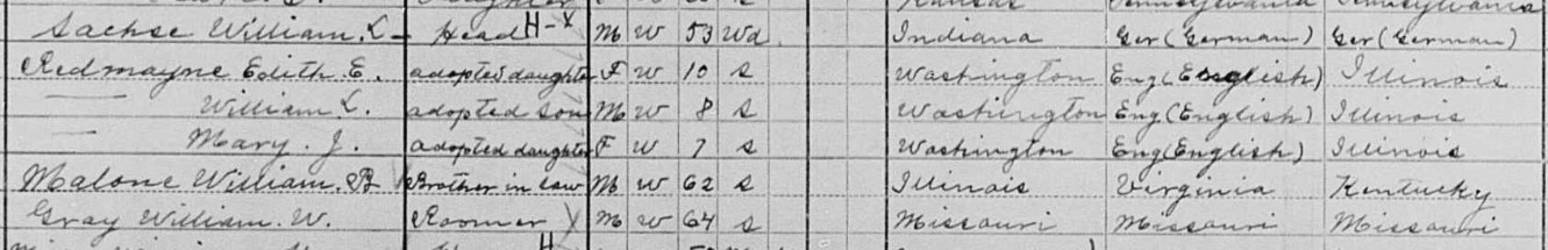 Kansas Pennsylvania Pennsylvania
Sachse William L - Head H-X M W 53 Wd Indiana Ger (German) Ger (German)
Redmayne Edith E. adopted daughter F W 10 S Washington Eng (English) Illinois
— William L. adopted son M W 8 S Washington Eng (English) Illinois
— Mary. J. adopted daughter F W 7 S Washington Eng (English) Illinois
Malone William. B Brother in law M W 62 S Illinois Virginia Kentucky
Gray William. W. Roomer M W 64 S Missouri Missouri Missouri
H